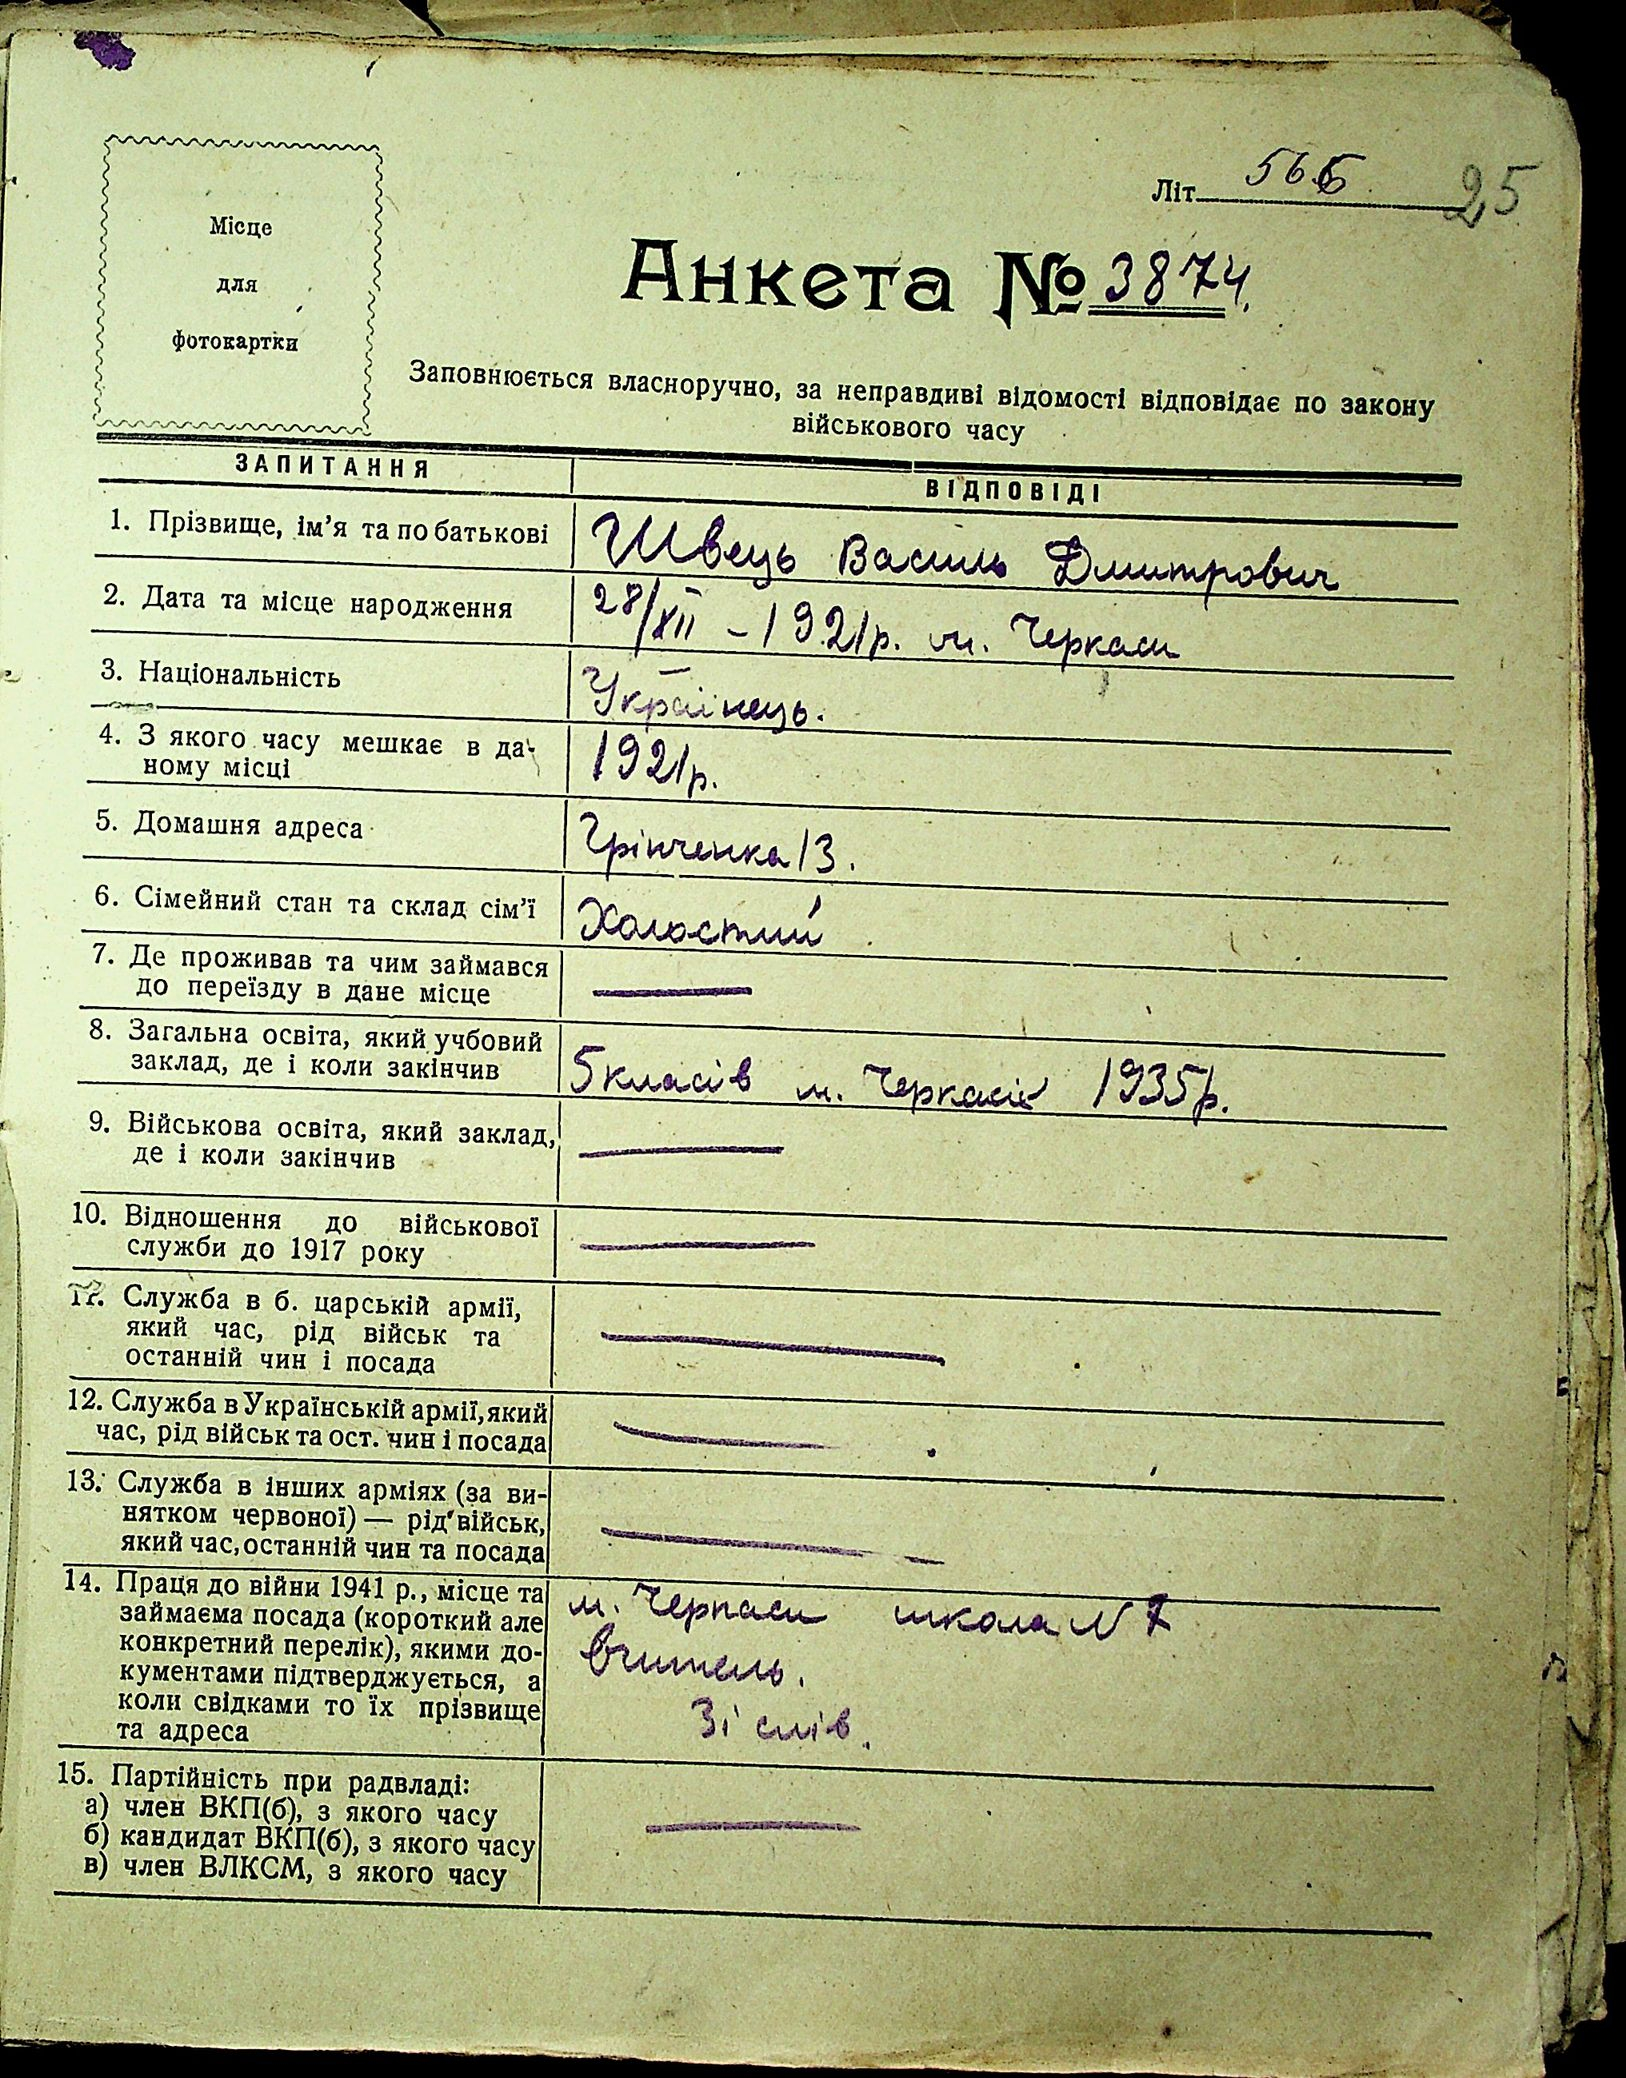 Місце
для
фотокартки
Літ 566
25
Анкета № 3874.
Заповнюється власноручно, за неправдиві відомості відповідає по закону
військового часу
ЗАПИТАННЯ
ВІДПОВІДІ
1. Прізвище, ім'я та по батькові
Швець Василь Дмитрович
2. Дата та місце народження
28/XII – 1921р. м. Черкаси
3. Національність
Українець.
4. З якого часу мешкає в да-
ному місці
1921р.
5. Домашня адреса
Грінченка 13.
6. Сімейний стан та склад сім'ї
Холостий
7. Де проживав та чим займався
до переїзду в дане місце
8. Загальна освіта, який учбовий
заклад, де і коли закінчив
5 класів м. Черкаси 1935р.
9. Військова освіта, який заклад,
де і коли закінчив
10. Відношення до військової
служби до 1917 року
11. Служба в б. царській армії,
який час, рід військ та
останній чин і посада
12. Служба в Українській армії, який
час, рід військ та ост. чин і посада
13. Служба в інших арміях (за ви-
нятком червоної) — рід військ,
який час, останній чин та посада
14. Праця до війни 1941 р., місце та
займаєма посада (короткий але
конкретний перелік), якими до-
кументами підтверджується, а
коли свідками то їх прізвище
та адреса
м. Черкаси школа N 7
вчитель.
Зі слів.
15. Партійність при радвладі:
а) член ВКП(б), з якого часу
б) кандидат ВКП(б), з якого часу
в) член ВЛКСМ, з якого часу